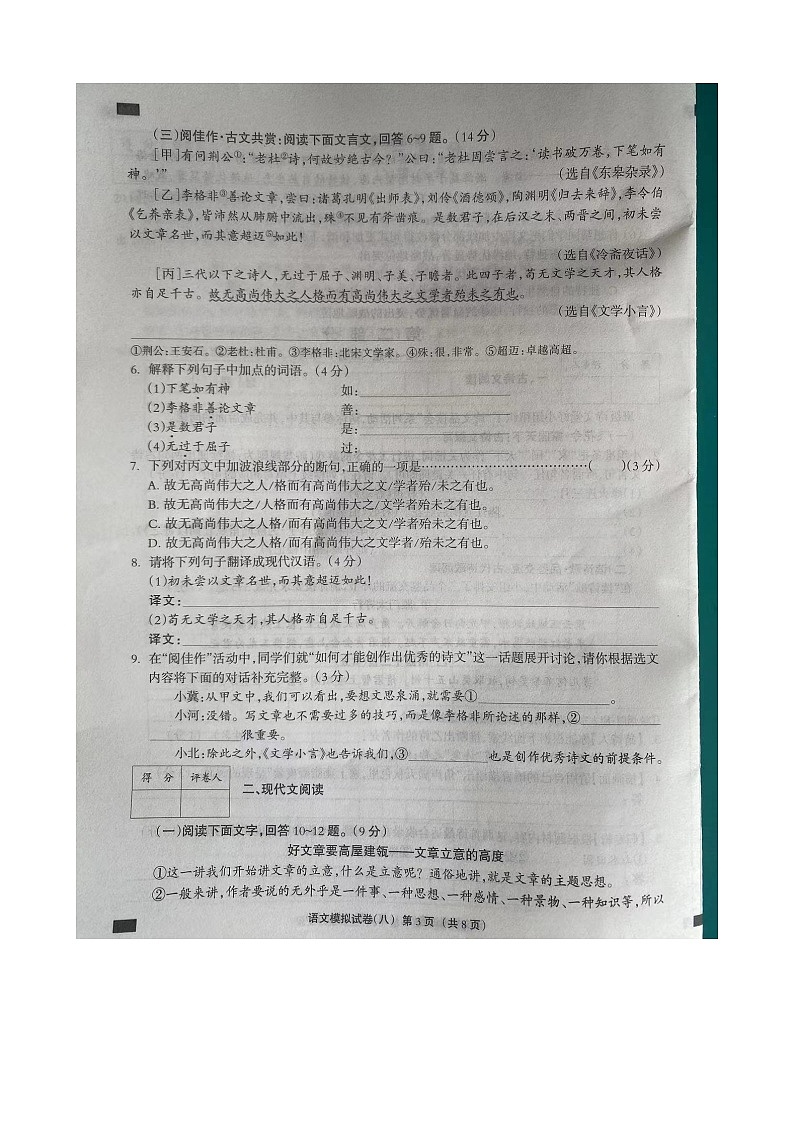 (三)阅佳作·古文共赏:阅读下面文言文,回答6~9题。(14分)
[甲]有问荆公①:“老杜②诗,何故妙绝古今?”公曰:“老杜固尝言之:‘读书破万卷,下笔如有
神。’”
(选自《东皋杂录》)
[乙]李格非③善论文章,尝曰:诸葛孔明《出师表》,刘伶《酒德颂》,陶渊明《归去来辞》,李令伯
《乞养亲表》,皆沛然从肺腑中流出,殊④不见有斧凿痕。是数君子,在后汉之末、两晋之间,初未尝
以文章名世,而其意超迈⑤如此!
(选自《冷斋夜话》)
[丙]三代以下之诗人,无过于屈子、渊明、子美、子瞻者。此四子者,苟无文学之天才,其人格
亦自足千古。故无高尚伟大之人格而有高尚伟大之文学者殆未之有也。
(选自《文学小言》)
①荆公:王安石。②老杜:杜甫。③李格非:北宋文学家。④殊:很,非常。⑤超迈:卓越高超。
6. 解释下列句子中加点的词语。(4分)
(1)下笔如有神 如:
(2)李格非善论文章 善:
(3)是数君子 是:
(4)无过于屈子 过:
7. 下列对丙文中加波浪线部分的断句,正确的一项是……………………………( )(3分)
A. 故无高尚伟大之人/格而有高尚伟大之文/学者殆/未之有也。
B. 故无高尚伟大之/人格而有高尚伟大之/文学者殆未之有也。
C. 故无高尚伟大之人格/而有高尚伟大之文/学者殆/未之有也。
D. 故无高尚伟大之人格/而有高尚伟大之文学者/殆未之有也。
8. 请将下列句子翻译成现代汉语。(4分)
(1)初未尝以文章名世,而其意超迈如此!
译文:
(2)苟无文学之天才,其人格亦自足千古。
译文:
9. 在“阅佳作”活动中,同学们就“如何才能创作出优秀的诗文”这一话题展开讨论,请你根据选文
内容将下面的对话补充完整。(3分)
小冀:从甲文中,我们可以看出,要想文思泉涌,就需要① 。
小河:没错。写文章也不需要过多的技巧,而是像李格非所论述的那样,②
很重要。
小北:除此之外,《文学小言》也告诉我们,③ 也是创作优秀诗文的前提条件。
得 分 评卷人
二、现代文阅读
(一)阅读下面文字,回答10~12题。(9分)
好文章要高屋建瓴——文章立意的高度
①这一讲我们开始讲文章的立意,什么是立意呢?通俗地讲,就是文章的主题思想。
②一般来讲,作者要说的无外乎是一件事、一种思想、一种感情、一种景物、一种知识等,所以
语文模拟试卷(八) 第3页 (共8页)